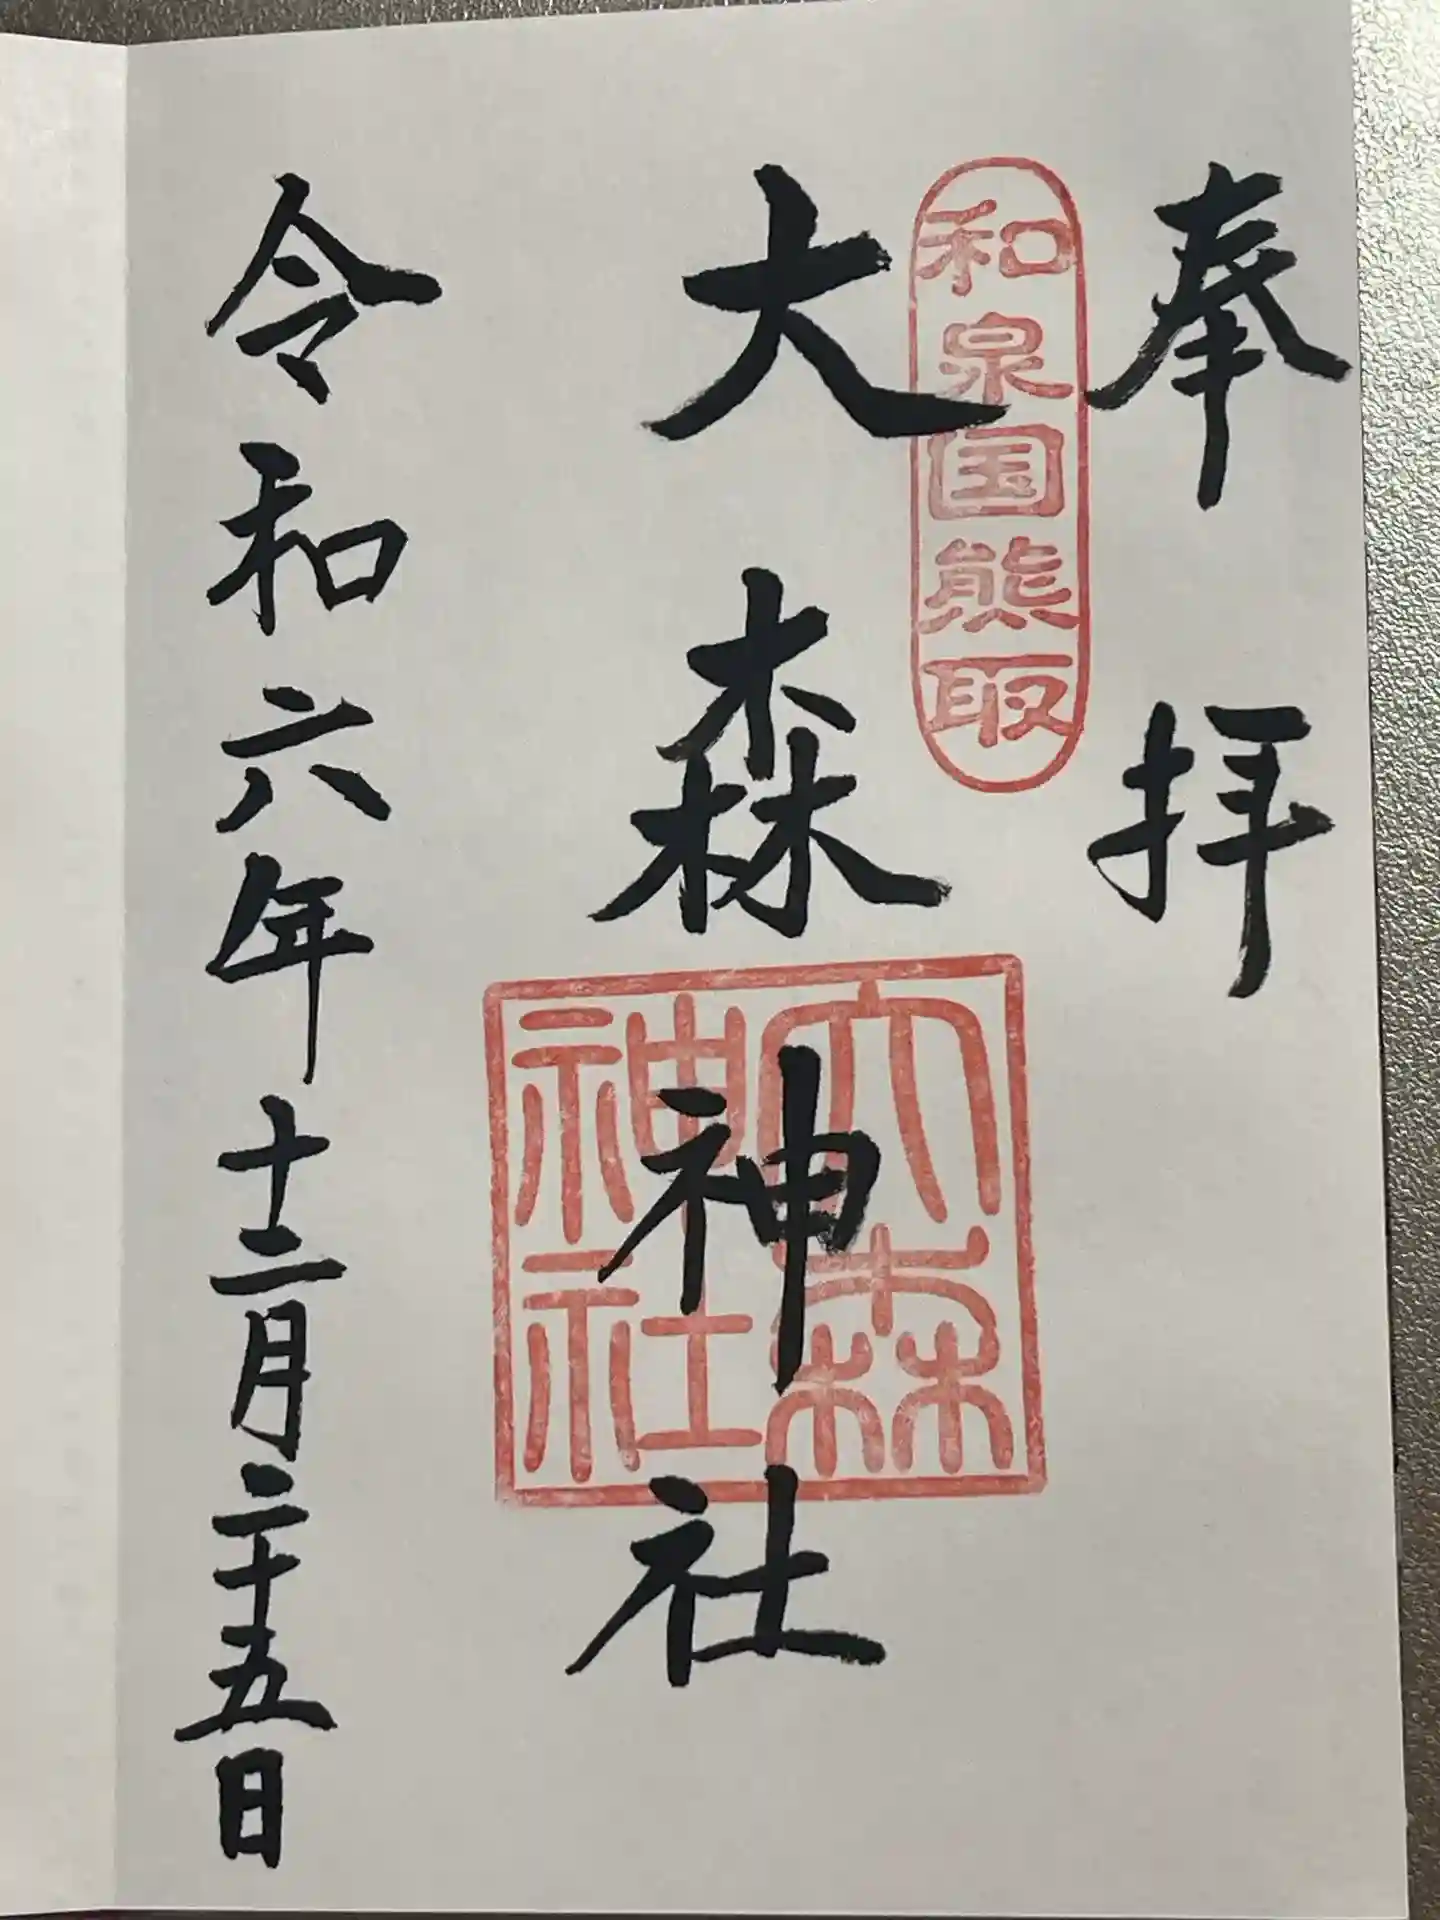 奉拝
和泉国熊取
大森神社
大森
神社
令和六年十二月二十五日